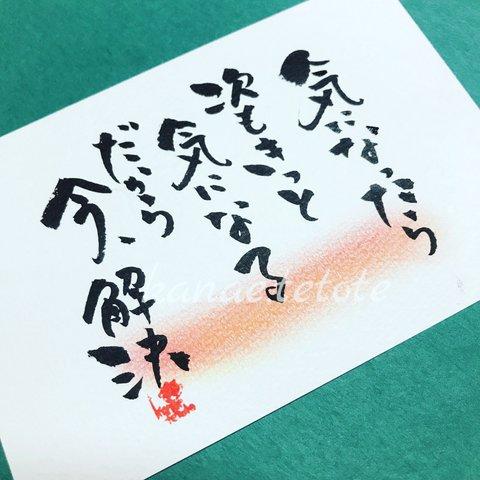 気になったら
次もきっと
気になるよ
だから
今、解決
kanae tetote